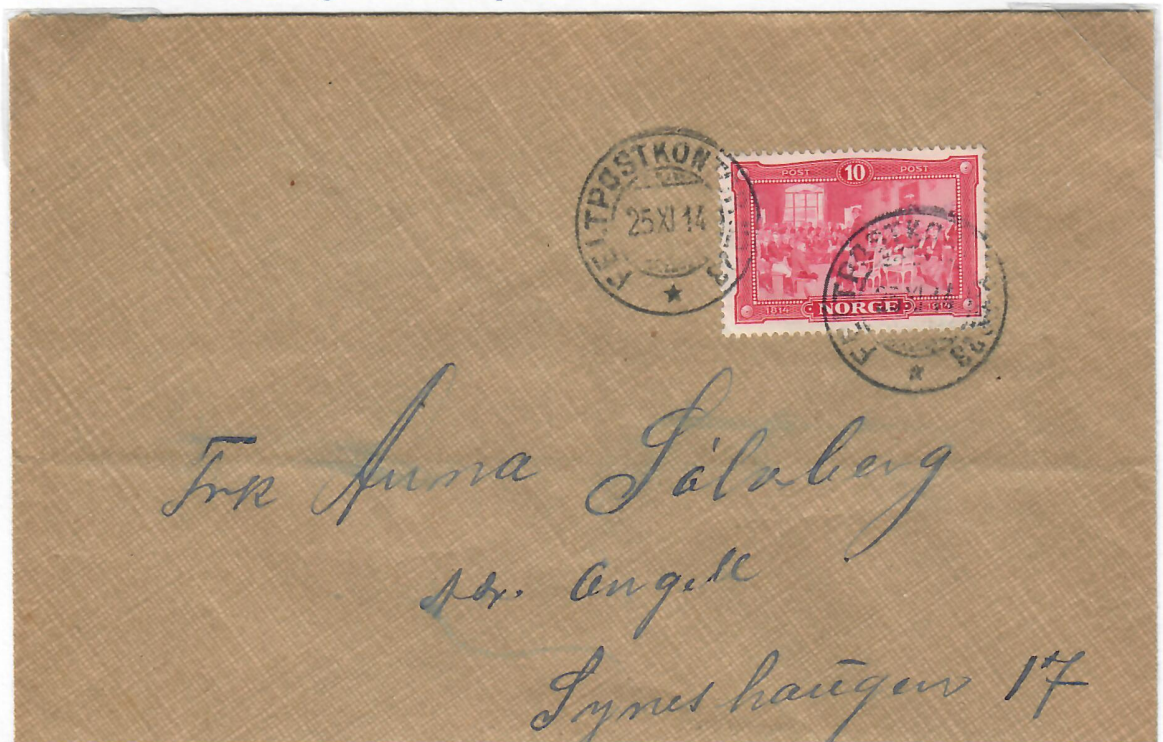 FELTPOSTKON
25 XI 14
POST 10 POST
1814 NORGE
Frk Anna Sølvberg
Adr. Angell
Syneshaugen 17